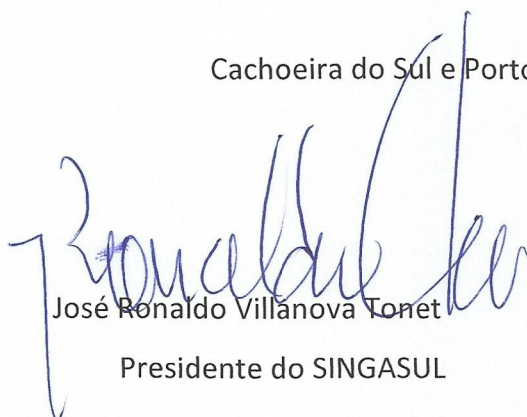 Cachoeira do Sul e Porto
Ronaldo
José Ronaldo Villanova Tonet
Presidente do SINGASUL